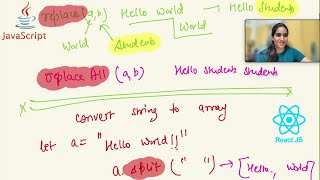 JavaScript
replace (a,b) Hello World → Hello Students
World Students
replace All (a,b) Hello Students Students
convert string to array
let a = "Hello World!!"
a. split (" ") → [Hello, World]
React JS